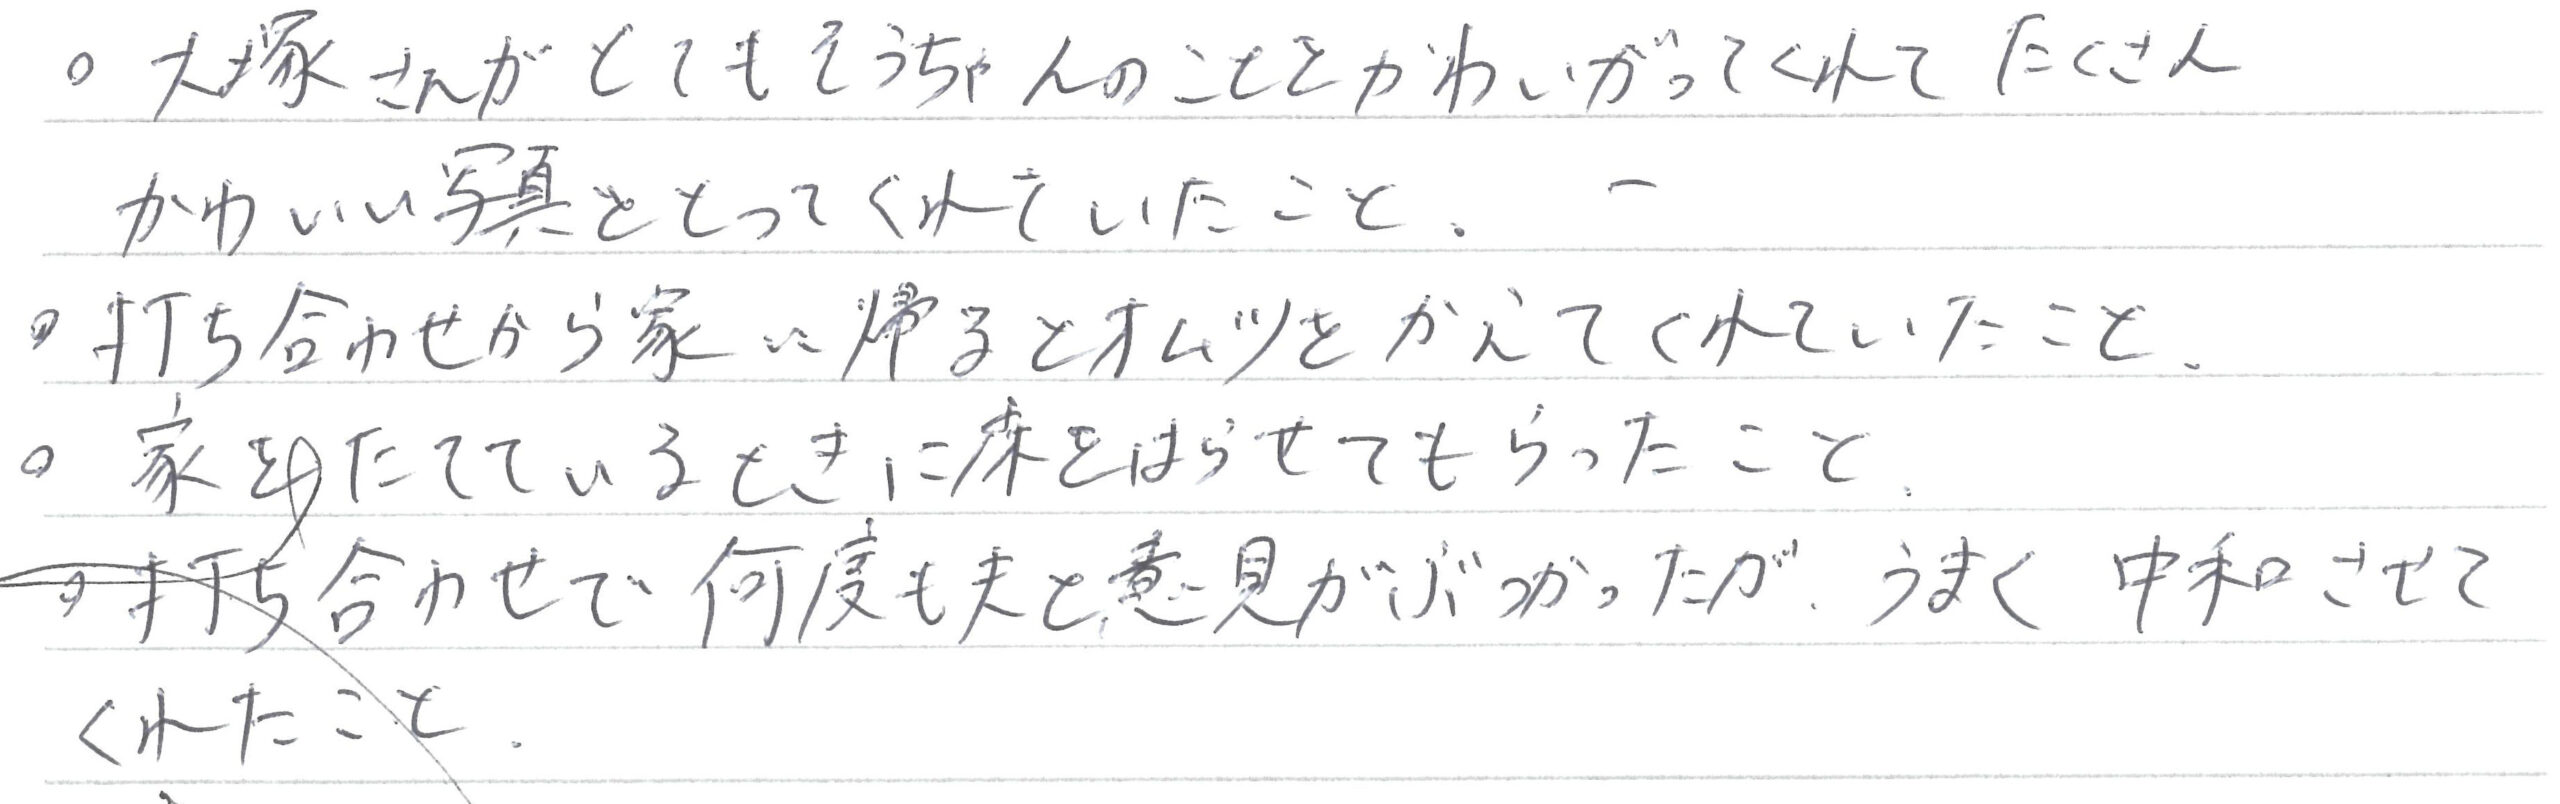 ○ 大塚さんがとてもそうちゃんのことをかわいがってくれて たくさん
かわいい写真をとってくれていたこと.
○ 打ち合わせから家に帰るとオムツをかえてくれていたこと.
○ 家をたてているときに床をはらせてもらったこと.
○ 打ち合わせで何度も夫と意見がぶつかったが、うまく 中和させて
くれたこと.